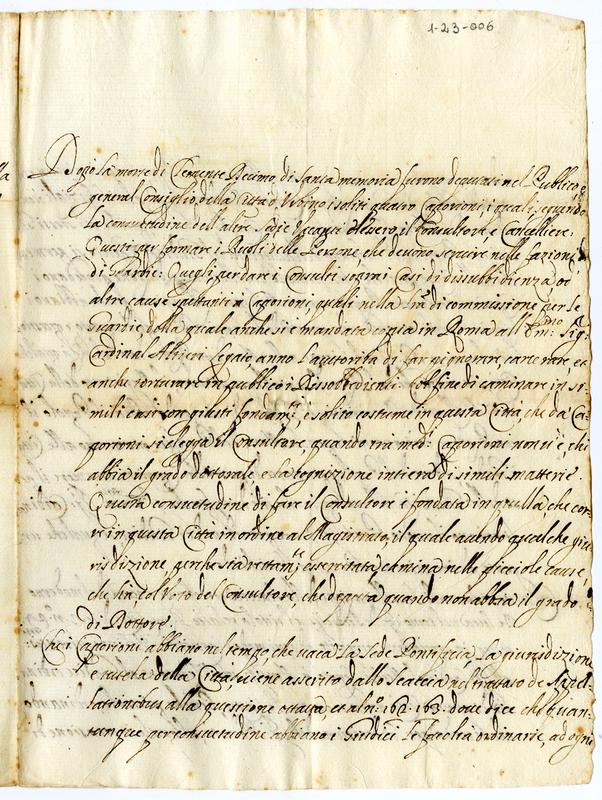 1-23-006
Dopo la morte di Clemente Decimo, di santa memoria furono deputati nel Publico e
general Consiglio della Città d'Urbino i soliti quatro Caporioni, i quali, seguendo
la consuetudine dell'altre Sedie Vacanti elessero il Consultore, e Cancelliere:
Questi per formare i Ruoli delle Persone, che devono servire nelle fazioni
di Guardie: Quegli, per dare i Consulti sopra i Casi di dissubbidienza, et
altre cause spettanti à Caporioni, quali nella di commissione per le
Guardie, della quale anche si è mandata copia in Roma all' Em.mo Sig.
Cardinal Altieri Legato, anno l'autorità di far pignorare, carcerare, et
anche torturare in publico i Disobbedienti. Col fine di caminare in si-
mili casi con giusti fondam.ti, è solito costume in questa Città, che da Ca-
porioni si elegga il Consultore, quando trà med.i Caporioni non vi è, chi
abbia il grado dottorale, e la cognizione intiera di simili matterie.
Questa consuetudine di fare il Consultore è fondata in quella, che cor-
re in questa Città in ordine al Magistrato, il quale avendo qualche giu-
risdizione, perche sia rettam.te essercitata, camina nelle picciole cause,
che hà, col Voto del Consultore, che deputa quando non abbia il grado
di Dottore.
Che i Caporioni abbiano nel tempo, che vaca la Sede Pontificia, la giurisdizione
e tutela della Città, viene asserito dallo Scaccia nel trattato de Appel-
lationibus alla questione ottava, et al n.o 162. 163. dove dice che quan-
tunque per consuetudine abbiano i Giudici le facoltà ordinarie, ad ogni